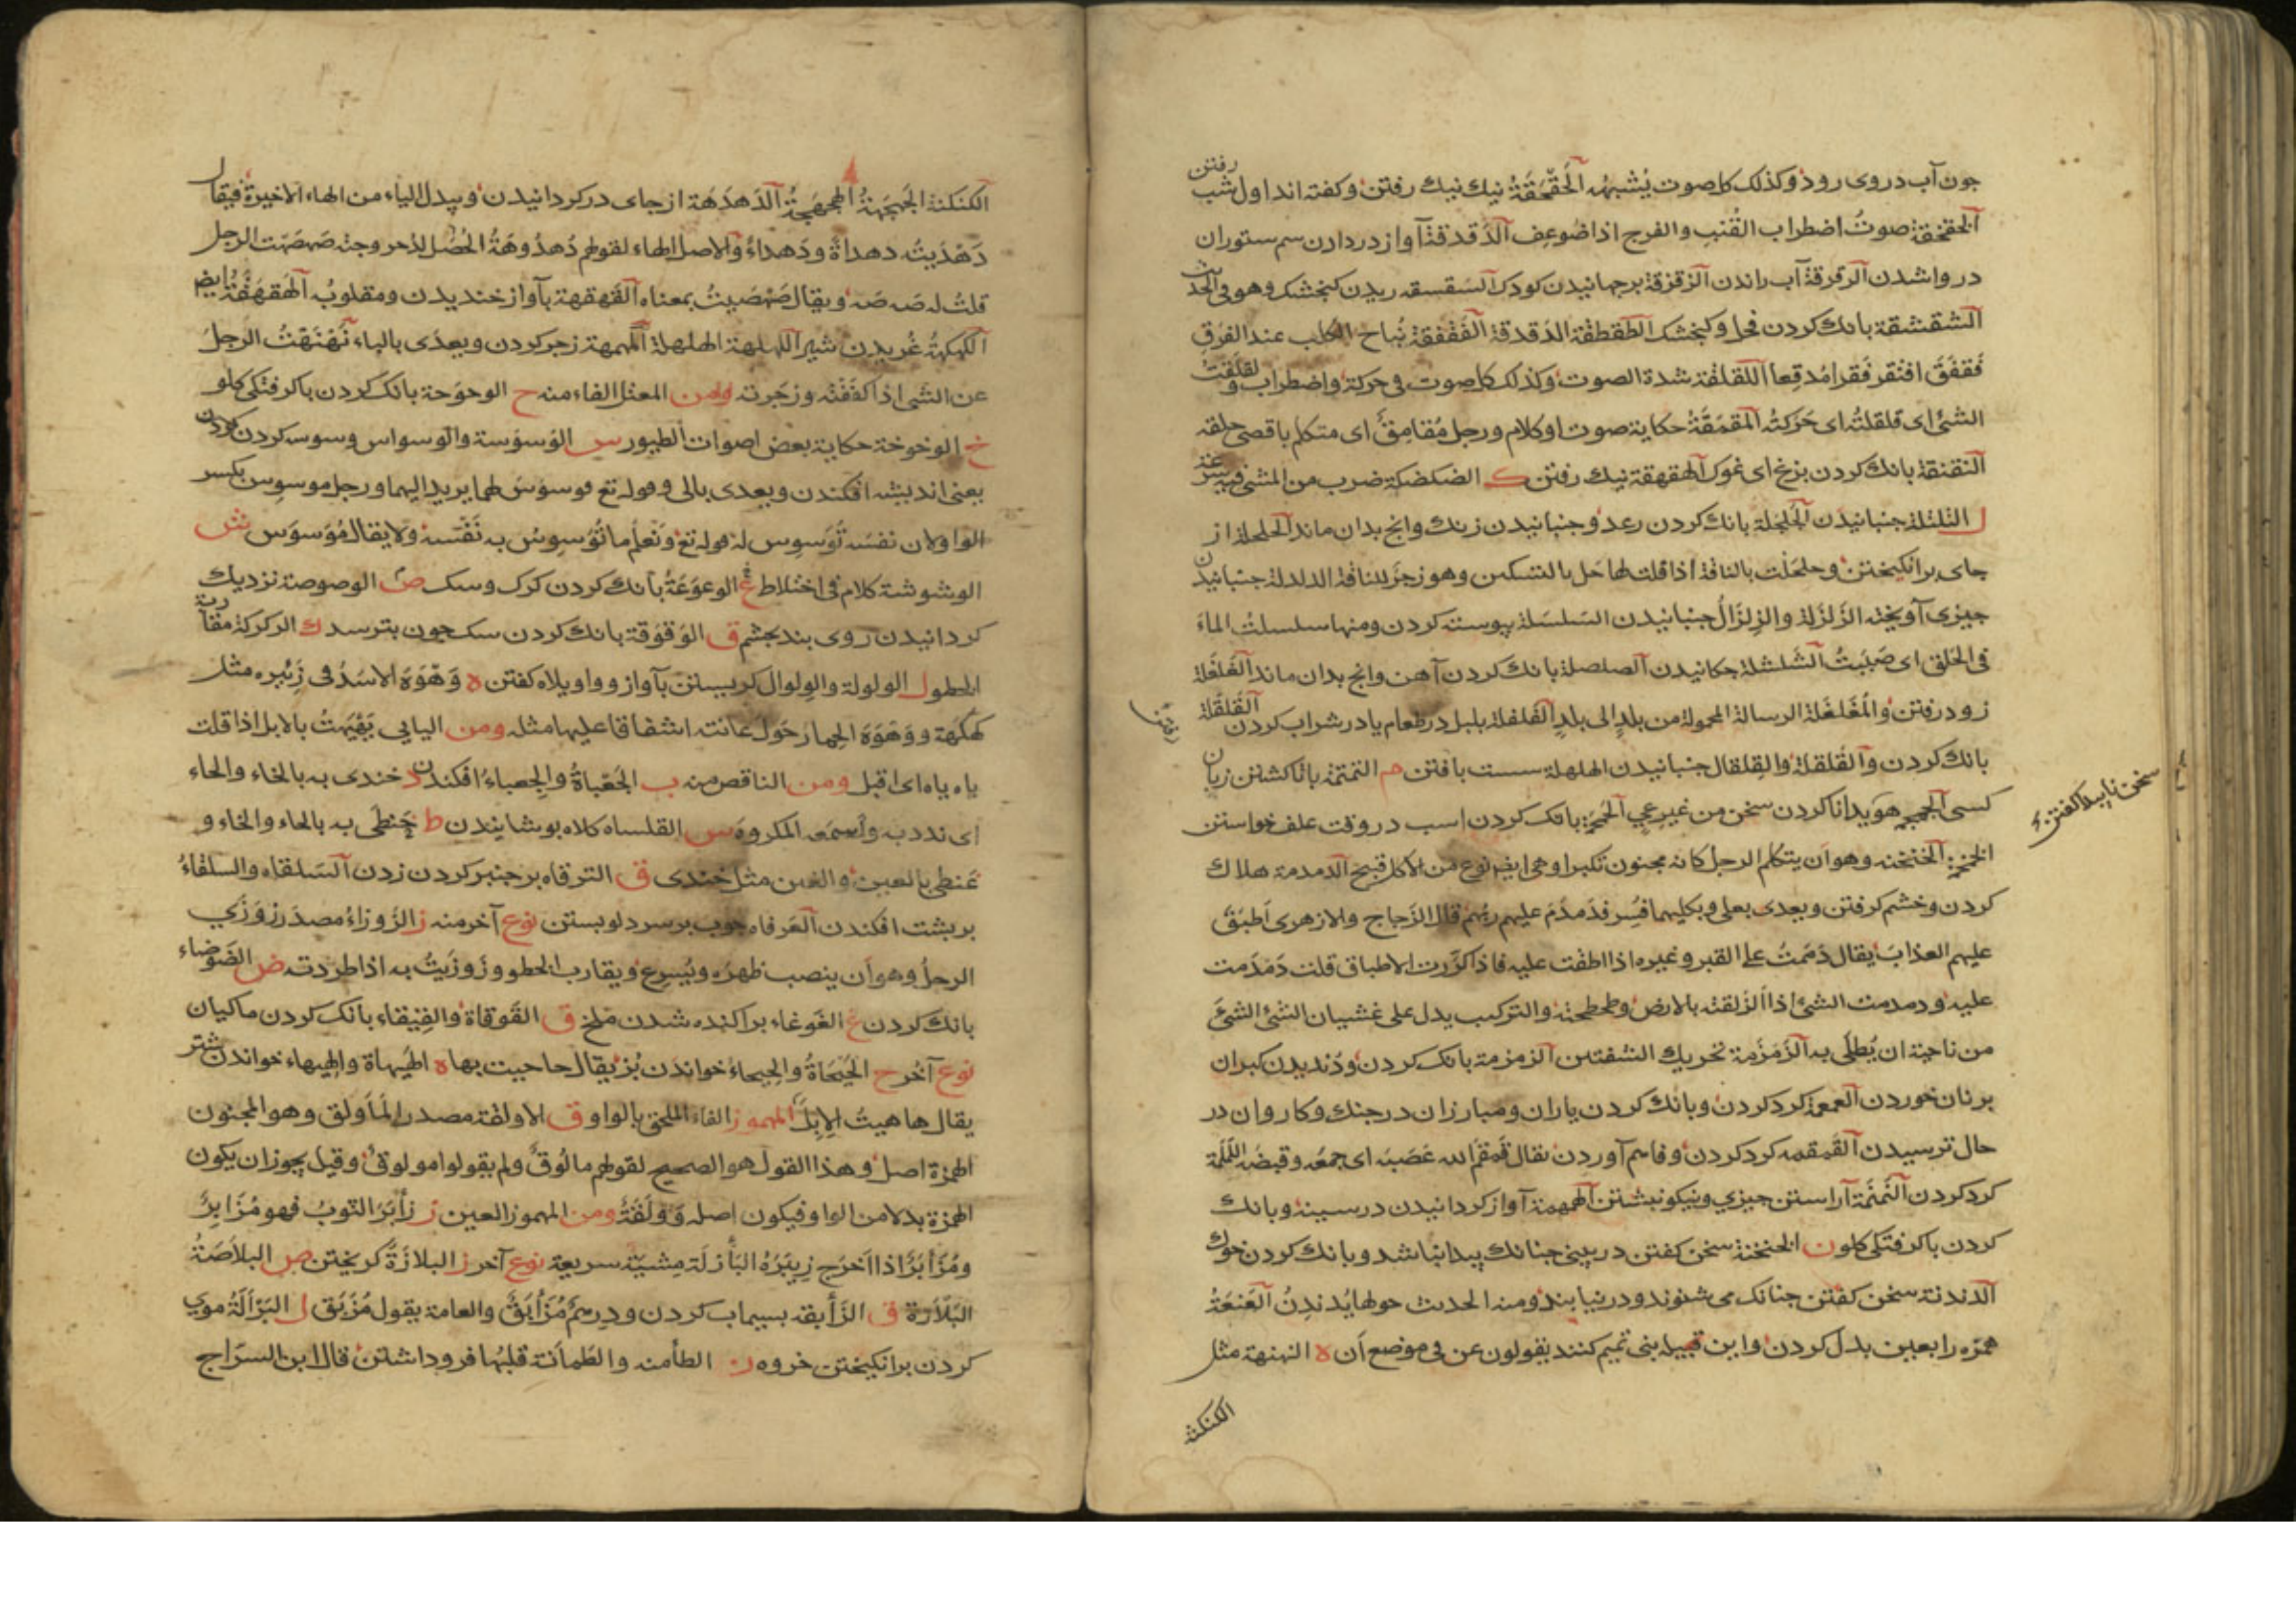 جون آب در وی رود وكذلك كل صوت يُشبهه الحَقْحَقَةُ نيك نيك رفتن وكفته اند اول شب رفتن
الخقخقة صوتُ اضطراب القُنْبِ والفرج اذا ضوعِف الدَقدقة آواز در دادن سم ستوران
در واشدن الرقرقة آب راندن الزقزقة برجهانيدن كودك السقسقه ريدن كنجشك وهو فی
الشقشقة بانك كردن فحل وكنجشك الطقطقة الدقدقة الفَقْفقة نُباح الكلب عند الفرَقِ
فَقفَقَ افتقر فَقرا مُدقِعا اللقلقة شدة الصوت وكذلك كل صوت فی حركة واضطراب ولقلقتُ
الشئ ای قلقلتُه ای حَرَكتُه المَقمَقَةُ حكاية صوت او كلام ورجل مُقامِقٌ ای متكلم باقصی حلقه
النقنقة بانك كردن بزغ ای غوك الهقهقة نيك رفتن ك الضكضكة ضرب من المشی فيه سرعة
ل التلتلة جنبانيدن الجَلجَلة بانك كردن رعد وجنبانيدن زنك وانج بدان ماند الحلحلة از
جای برانكيختن وحلحَلْت بالناقة اذا قلت لها حَل بالتسكين وهو زجر للناقة الدلدلة جنبانيدن
جيزی آويخته الزَلزَلة والزِلزالُ جنبانيدن السَلسَلة پيوسته كردن ومنها سلسلتُ الماءَ
فی الحَلق ای صَبَبتُ الشَلشلة جكانيدن الصلصلة بانك كردن آهن وانج بدان ماند الغَلغَلة
زود رفتن والمُغَلغَلة الرسالة المحمولة من بلدٍ الی بلدٍ الفَلفلة پلپل در طعام يا در شراب كردن القَلقَلة
بانك كردن والقَلقلة والقِلقال جنبانيدن الهلهلة سست بافتن م التمتمة باتا كشتن زبان
كسی الجمجمه هويدا ناكردن سخن من غير عِی الحَمحَمَة بانك كردن اسب در وقت علف خواستن
سخن ناپيدا كفتن
الخمخمة الخنخنه وهو ان يتكلم الرجل كانه مجنون تكبرا وهی ايضا نوع من الاكل قبيح الدمدمة هلاك
كردن وخشم كرفتن ويعدی بعلی وبكليهما فُسِر فدَمدَمَ عليهم ربُّهُم قال الزجاج والازهری اَطبَقَ
عليهم العذابَ يقال دَمَمتُ علی القبر وغيره اذا اطبقت عليه فاذا كرَّرت الاطباق قلت دَمدَمت
عليه ودمدمت الشئ اذا اَلزَقته بالارض وطحطحته والتركيب يدل علی غشيان الشئ الشئَ
من ناحية ان يُطلَی به الزَمزَمة تحريك الشفتين الزمزمة بانك كردن ودُنديدن كبران
بر نان خوردن الغمغمة كرد كردن وبانك كردن ياران ومبارزان در جنك وكاروان در
حال ترسيدن القمقمه كرد كردن وفاهم آوردن يقال قَمقَمَ الله عَصَبَه ای جمعَه وقبضَه اللَملَمة
كرد كردن النَمنَمة آراستن جيزی ونيكو نبشتن الهمهمة آواز كردانيدن در سينه وبانك
كردن باكرفتكی كلو ن الخنخنة سخن كفتن در بينی جنانك پيدا نباشد وبانك كردن خوك
الدندنة سخن كفتن جنانك می شنوند ودر نيابند ومنه الحديث حولها يُدندِنُ العَنعَنَةُ
همزه را بعين بدل كردن واين قبيله بنی تميم كنند يقولون عن فی موضع اَن ه النهنهة مثل
الكنكنة
الكنكنة الجَهجَهةُ الهجهجةُ الدَهدَهَة از جای در كردانيدن ويبدل الياء من الهاء الاخيرة فيقال
دَهْدَيتُ دهداةً ودَهداءً والاصل الهاء لقولهم دُهدُوهَةُ الجُعَل لدُحروجته صَهصَهت الرجل
قلتُ له صَه صَه ويقال صَهصَيتُ بمعناه القَهقهة بآواز خنديدن ومقلوبُه الهَقهَقَةُ ايضا
الكهكهةُ غُريدن شير اللهلهة الهلهلة المهمهة زجر كردن ويعدی بالباء نَهْنَهْتُ الرجلَ
عن الشی اذا كَفَفْته وزجَرته ومن المعتل الفاء منه ح الوحوَحة بانك كردن باكرفتكی كلو
خ الوخوخة حكاية بعض اصوات الطيور س الوَسوَسة والوسواس وسوسه كردن
يعنی انديشه افكندن ويعدی بالی وقوله تع فوسوَسَ لهما يريد اليهما ورجل موسوِس بكسر
الواو لان نفسَه تُوَسوِس له قوله تع ونَعلَم ما تُوَسوِسُ به نَفْسُه ولا يقال مُوَسوَس ش
الوشوشة كلام فی اختلاط ع الوعوَعَةُ بانك كردن كرك وسك ص الوصوصة نزديك
كردانيدن روی بند بجشم ق الوَقوَقة بانك كردن سك جون بترسد ك الركركة مقاربة
الخطو ل الولولة والوِلوال كريستن بآواز وواويلاه كفتن ه وَهْوَهَ الاسَدُ فی زَئيره مثل
كَهكَهَة ووَهوَهَ الحِمار حَولَ عانته اشفاقا عليها مثله ومن اليايی يَهْيَهتُ بالابل اذا قلت
ياه ياه ای اقبل ومن الناقص منه ب الجَعْباةُ والجِعباءُ افكندن د خندی به بالخاء والحاء
ای ندد به واَسمعَه المكروه س القلساه كلاه پوشانيدن ط خَنظَی به بالحاء والخاء و
عَنظی بالعين والغين مثل خندی ق الترقاه بر جنبر كردن زدن السَلقاه والسلقاءُ
بر بشت افكندن العَرقاه جوب بر سر دلو بستن نوع آخر منه ز الزَوزاءُ مصدَر زَوزَی
الرجلُ وهو اَن ينصب ظهرَه ويُسرِع ويقارب الخطو وزَوزَيتُ به اذا طردته ض الضَوضاء
بانك كردن غ الغَوغاء پراكنده شدن ملخ ق القَوقاة والقِيقاء بانك كردن ماكيان
نوع آخر ح الحَيحَاةُ والحِيحاءُ خواندن بُز يقال حاحيت بها ه الهَيهاة والهِيهاء خواندن شتر
يقال هاهيتُ الاِبِلَ المهموز الفاء الملحق بالواو ق الاولقة مصدر المأولق وهو المجنون
الهمزة اصل وهذا القول هو الصحيح لقولهم مالُوقٌ ولم يقولوا مولوق وقيل يجوز ان يكون
الهمزة بدلا من الواو فيكون اصله وَولَقَةٌ ومن المهموز العين ز زأبَرَ الثوبُ فهو مُزَابِرٌ
ومُزأبَرٌ اذا اَخرَج زِيبَرَهُ البَأزلَة مِشيَة سريعة نوع آخر ز البلازَةُ كريختن ص البلاصَةُ
البَلازة ق الزَأبقه بسيماب كردن ودرهم مُزأبَقٌ والعامة يقول مُزَبَّق ل البَرْألَةُ موی
كردن برانكيختن خروه ن الطأمنه والطَمأنة قلبُها فروداشتن قال ابن السرّاج